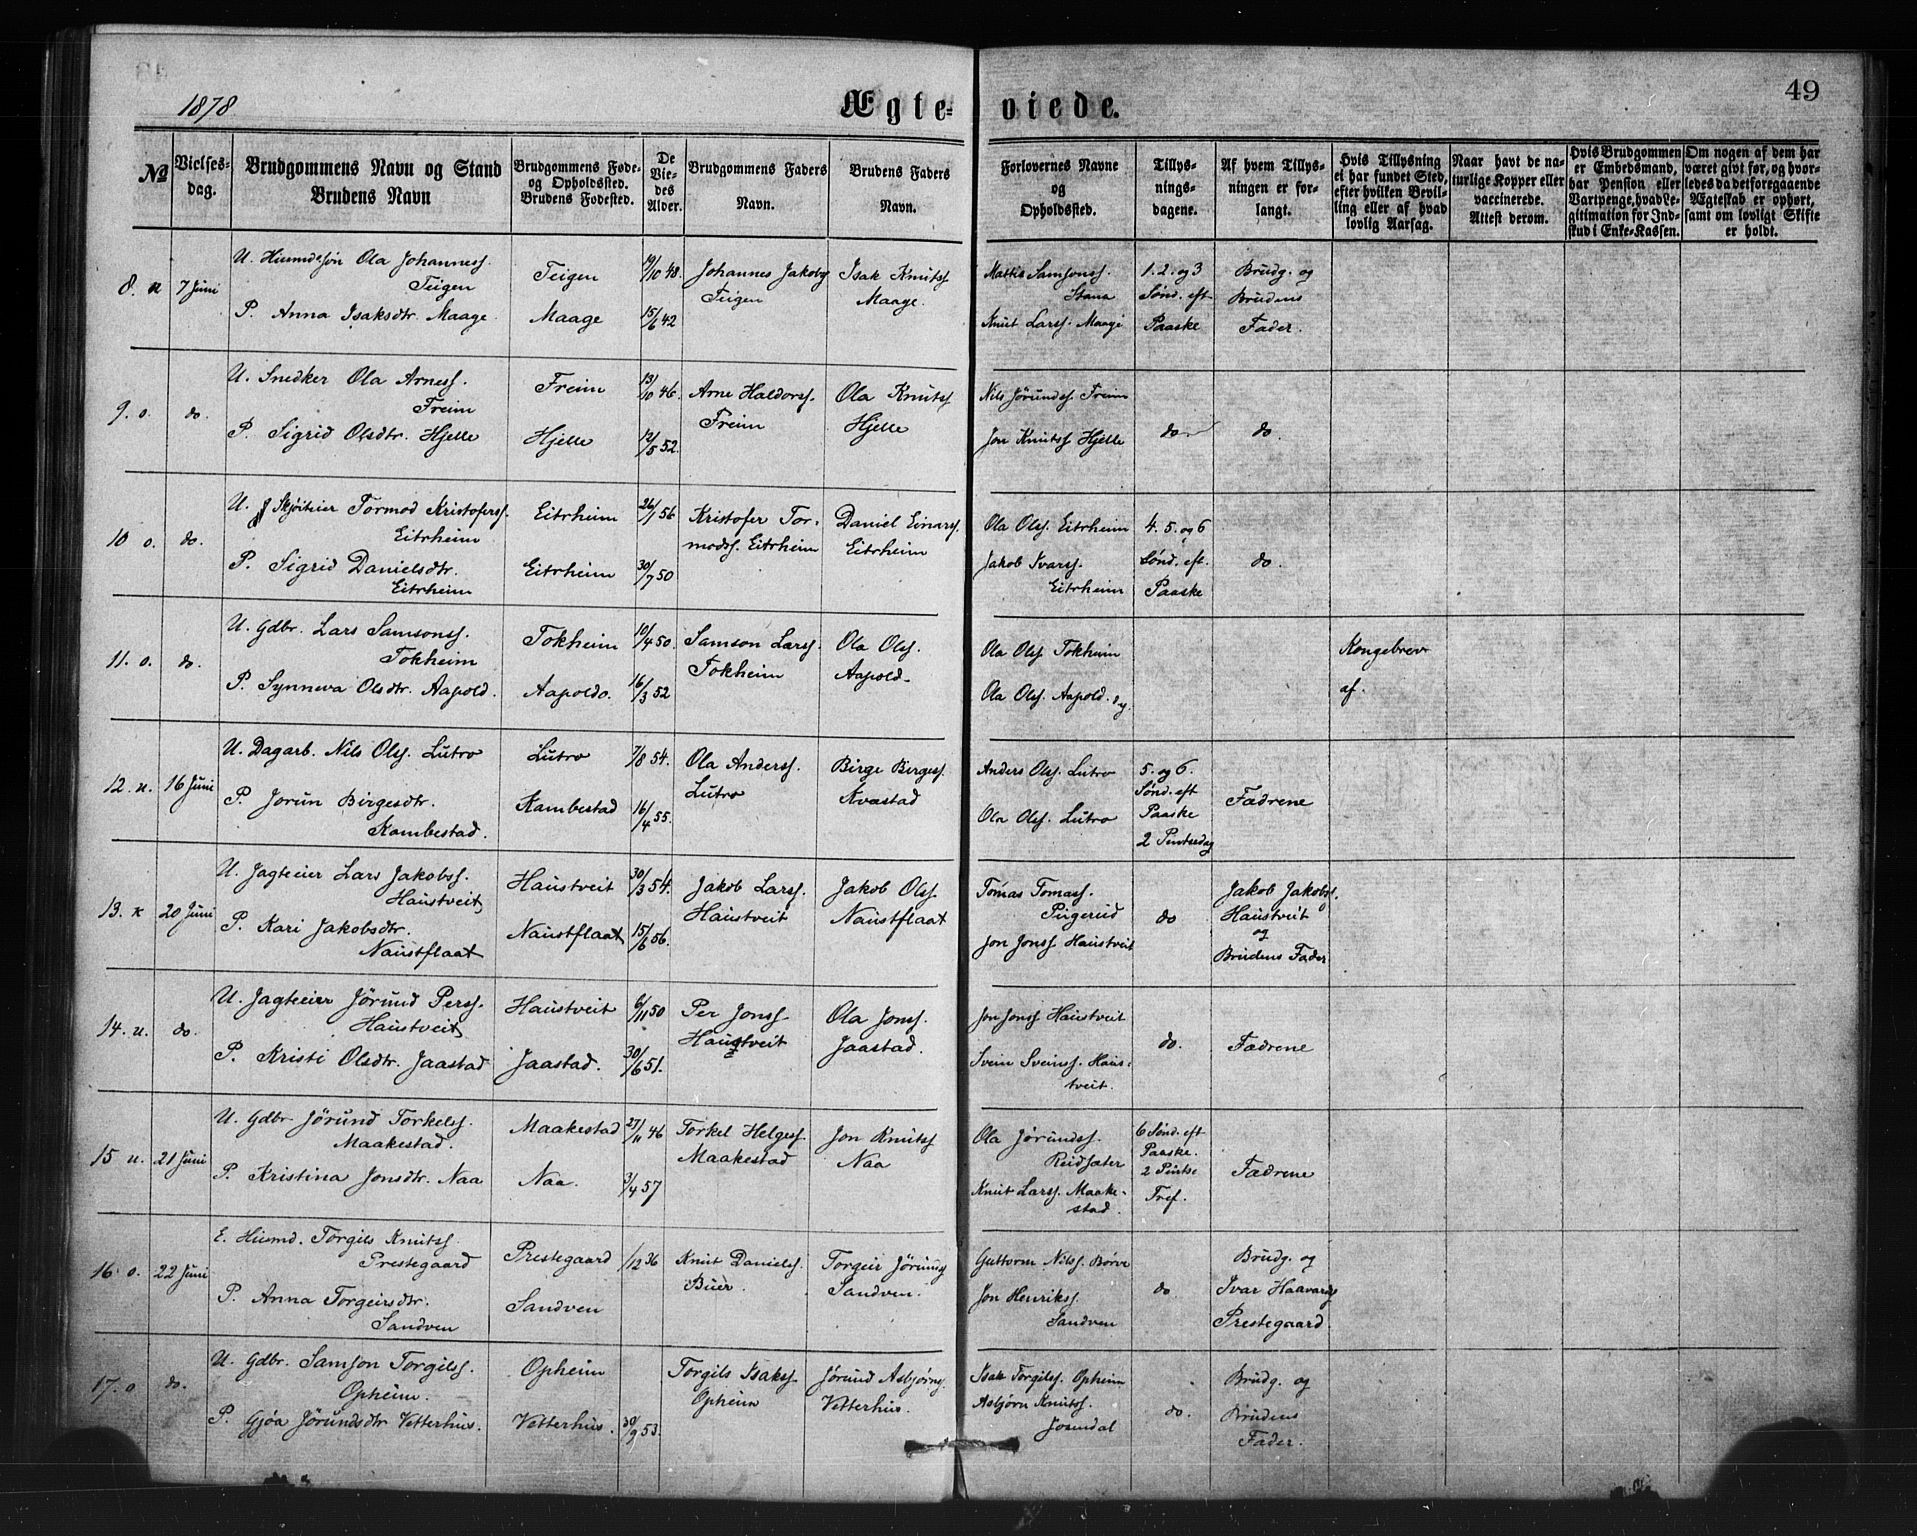 1878
Ægte-
viede.
49
No
Vielses-
dag.
Brudgommens Navn og Stand
Brudens Navn
Brudgommens Føde-
og Opholdssted.
Brudens Fødested.
De
Vie-
des
Alder.
Brudgommens Faders
Navn.
Brudens Faders
Navn.
Forlovernes Navne
og
Opholdssted.
Tillys-
nings-
dagene.
Af hvem Tillys-
ningen er for-
langt.
Hvis Tillysning
ei har fundet Sted,
efter hvilken Bevil-
ling eller af hvad
lovlig Aarsag.
Naar havt de na-
turlige Kopper eller
vaccinerede.
Attest derom.
Hvis Brudgommen
er Embedsmand,
har Pension eller
Vartpenge, hvad Le-
gitimation for Ind-
skud i Enke-Kassen.
Om nogen af dem har
været givt før, og hvor-
ledes da det foregaaende
Ægteskab er ophørt,
samt om lovligt Skifte
er holdt.
8. n 7 Juni
U. Huusmdssøn Ola Johanness.
Teigen
P. Anna Isaksdtr. Maage.
Teigen
Maage
19/10 48.
15/6 42
Johannes Jakobs
Teigen
Isak Knuts
Maage.
Mattis Samsons.
Stana
Knut Lars. Maage
1. 2. og 3
Sønd. eft
Paaske
Brudg. og
Brudens
Fader.
9. o. do.
U. Snedker Ola Arnes.
Freim
P. Sigrid Olsdtr. Hjelle
Freim
Hjelle
13/10 46.
12/5 52.
Arne Haldors.
Freim
Ola Knuts
Hjelle
Nils Jørunds. Freim
Jon Knuts. Hjelle
do
do.
10 o. do.
U. Skjøiteier Tormod Kristofers.
Eitrheim
P. Sigrid Danielsdtr.
Eitrheim
Eitrheim
Eitrheim
26/1 56
30/7 50
Kristofer Tor-
mods. Eitrheim
Daniel Einars.
Eitrheim
Ola Ols. Eitrheim
Jakob Ivars.
Eitrheim
4. 5. og 6
Sønd. eft.
Paaske
do.
11. o. do.
U. Gdbr. Lars Samsons.
Tokheim
P. Synneva Olsdtr. Aapold.
Tokheim
Aapoldo.
10/4 50.
16/3 52
Samson Lars.
Tokheim
Ola Ols.
Aapold.
Ola Ols. Tokheim
Ola Ols. Aapold. d.y.
Kongebrev
af.
12. n. 16 Juni
U. Dagarb. Nils Ols. Lutro
P. Jorun Birgesdtr.
Kambestad.
Lutro
Kambestad
7/8 54.
16/4 55.
Ola Anders.
Lutro
Birge Birges.
Kvæstad
Anders Ols. Lutro
Ola Ols. Lutro
5. og 6.
Sønd. eft
Paaske
2 Pintsedag
Fædrene
13. 20 Juni
U. Jagteeier Lars Jakobs.
Haustveit
P. Kari Jakobsdtr.
Naustflaat
Haustveit
Naustflaat
30/3 54.
15/6 56.
Jakob Lars.
Haustveit
Jakob Ols.
Naustflaat
Tomas Tomas.
Pugerud
Jon Jons. Haustveit
do
Jakob Jakobs.
Haustveit
og
Brudens Fader
14. n. do.
U. Jagteeier Jørund Pers.
Haustveit
P. Kristi Olsdtr. Jaastad
Haustveit
Jaastad.
6/11 50
30/6 51.
Per Jons.
Haustveit
Ola Jons.
Jaastad.
Jon Jons. Haustveit
Svein Sveins. Haus-
tveit.
do.
Fædrene
15 n. 21 Juni
U. Gdbr Jørund Torkels.
Maakestad.
P. Kristina Jonsdtr. Naa
Maakestad
Naa.
27/11 46
3/4 57
Torkel Helges.
Maakestad
Jon Knuts
Naa
Ola Jørunds.
Reidsæter
Knut Lars. Maake-
stad.
6 Sønd. eft
Paaske.
2 Pintse
Tref.
Fædrene
16. o. 22 Juni
E. Huusmd. Torgils Knuts.
Prestegaard
P. Anna Torgeirsdtr.
Sandven
Prestegaard
Sandven
/12 36
Knut Daniels.
Buer.
Torgeir Jørunds
Sandven.
Guttorm Nils. Børve
Jon Henriks.
Sandven
do.
Brudg. og
Ivar Haavards
Prestegaard.
17. o do.
U. Gdbr. Samson Torgils.
Opheim.
P. Gjøa Jørundsdtr Vetterhus.
Opheim
Vetterhus.
30/9 53.
Torgils Isaks.
Opheim
Jørund Asbjørns.
Vetterhus.
Isak Torgils. Opheim
Asbjørn Knuts.
Jøsendal
do.
Brudg. og
Brudens
Fader.